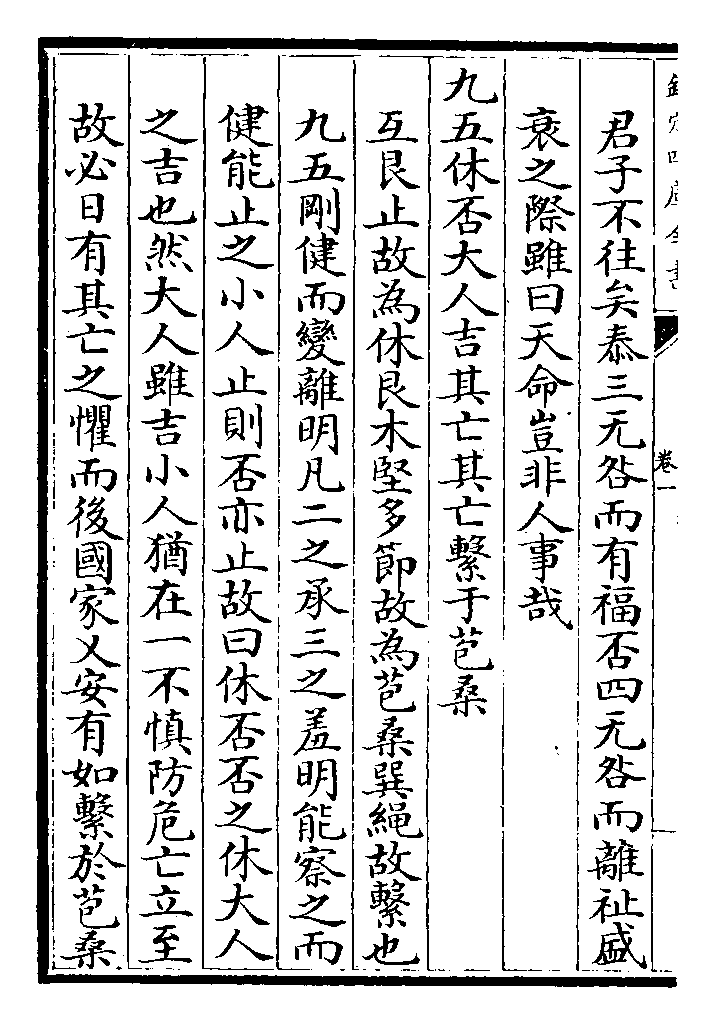 欽定四庫全書
卷一
君子不往矣泰三无咎而有福否四无咎而離祉盛
衰之際雖曰天命豈非人事哉
九五休否大人吉其亡其亡繫于苞桑
互艮止故為休艮木堅多節故為苞桑巽繩故繫也
九五剛健而變離明凡二之承三之羞明能察之而
健能止之小人止則否亦止故曰休否否之休大人
之吉也然大人雖吉小人猶在一不慎防危亡立至
故必日有其亡之懼而後國家乂安有如繫於苞桑